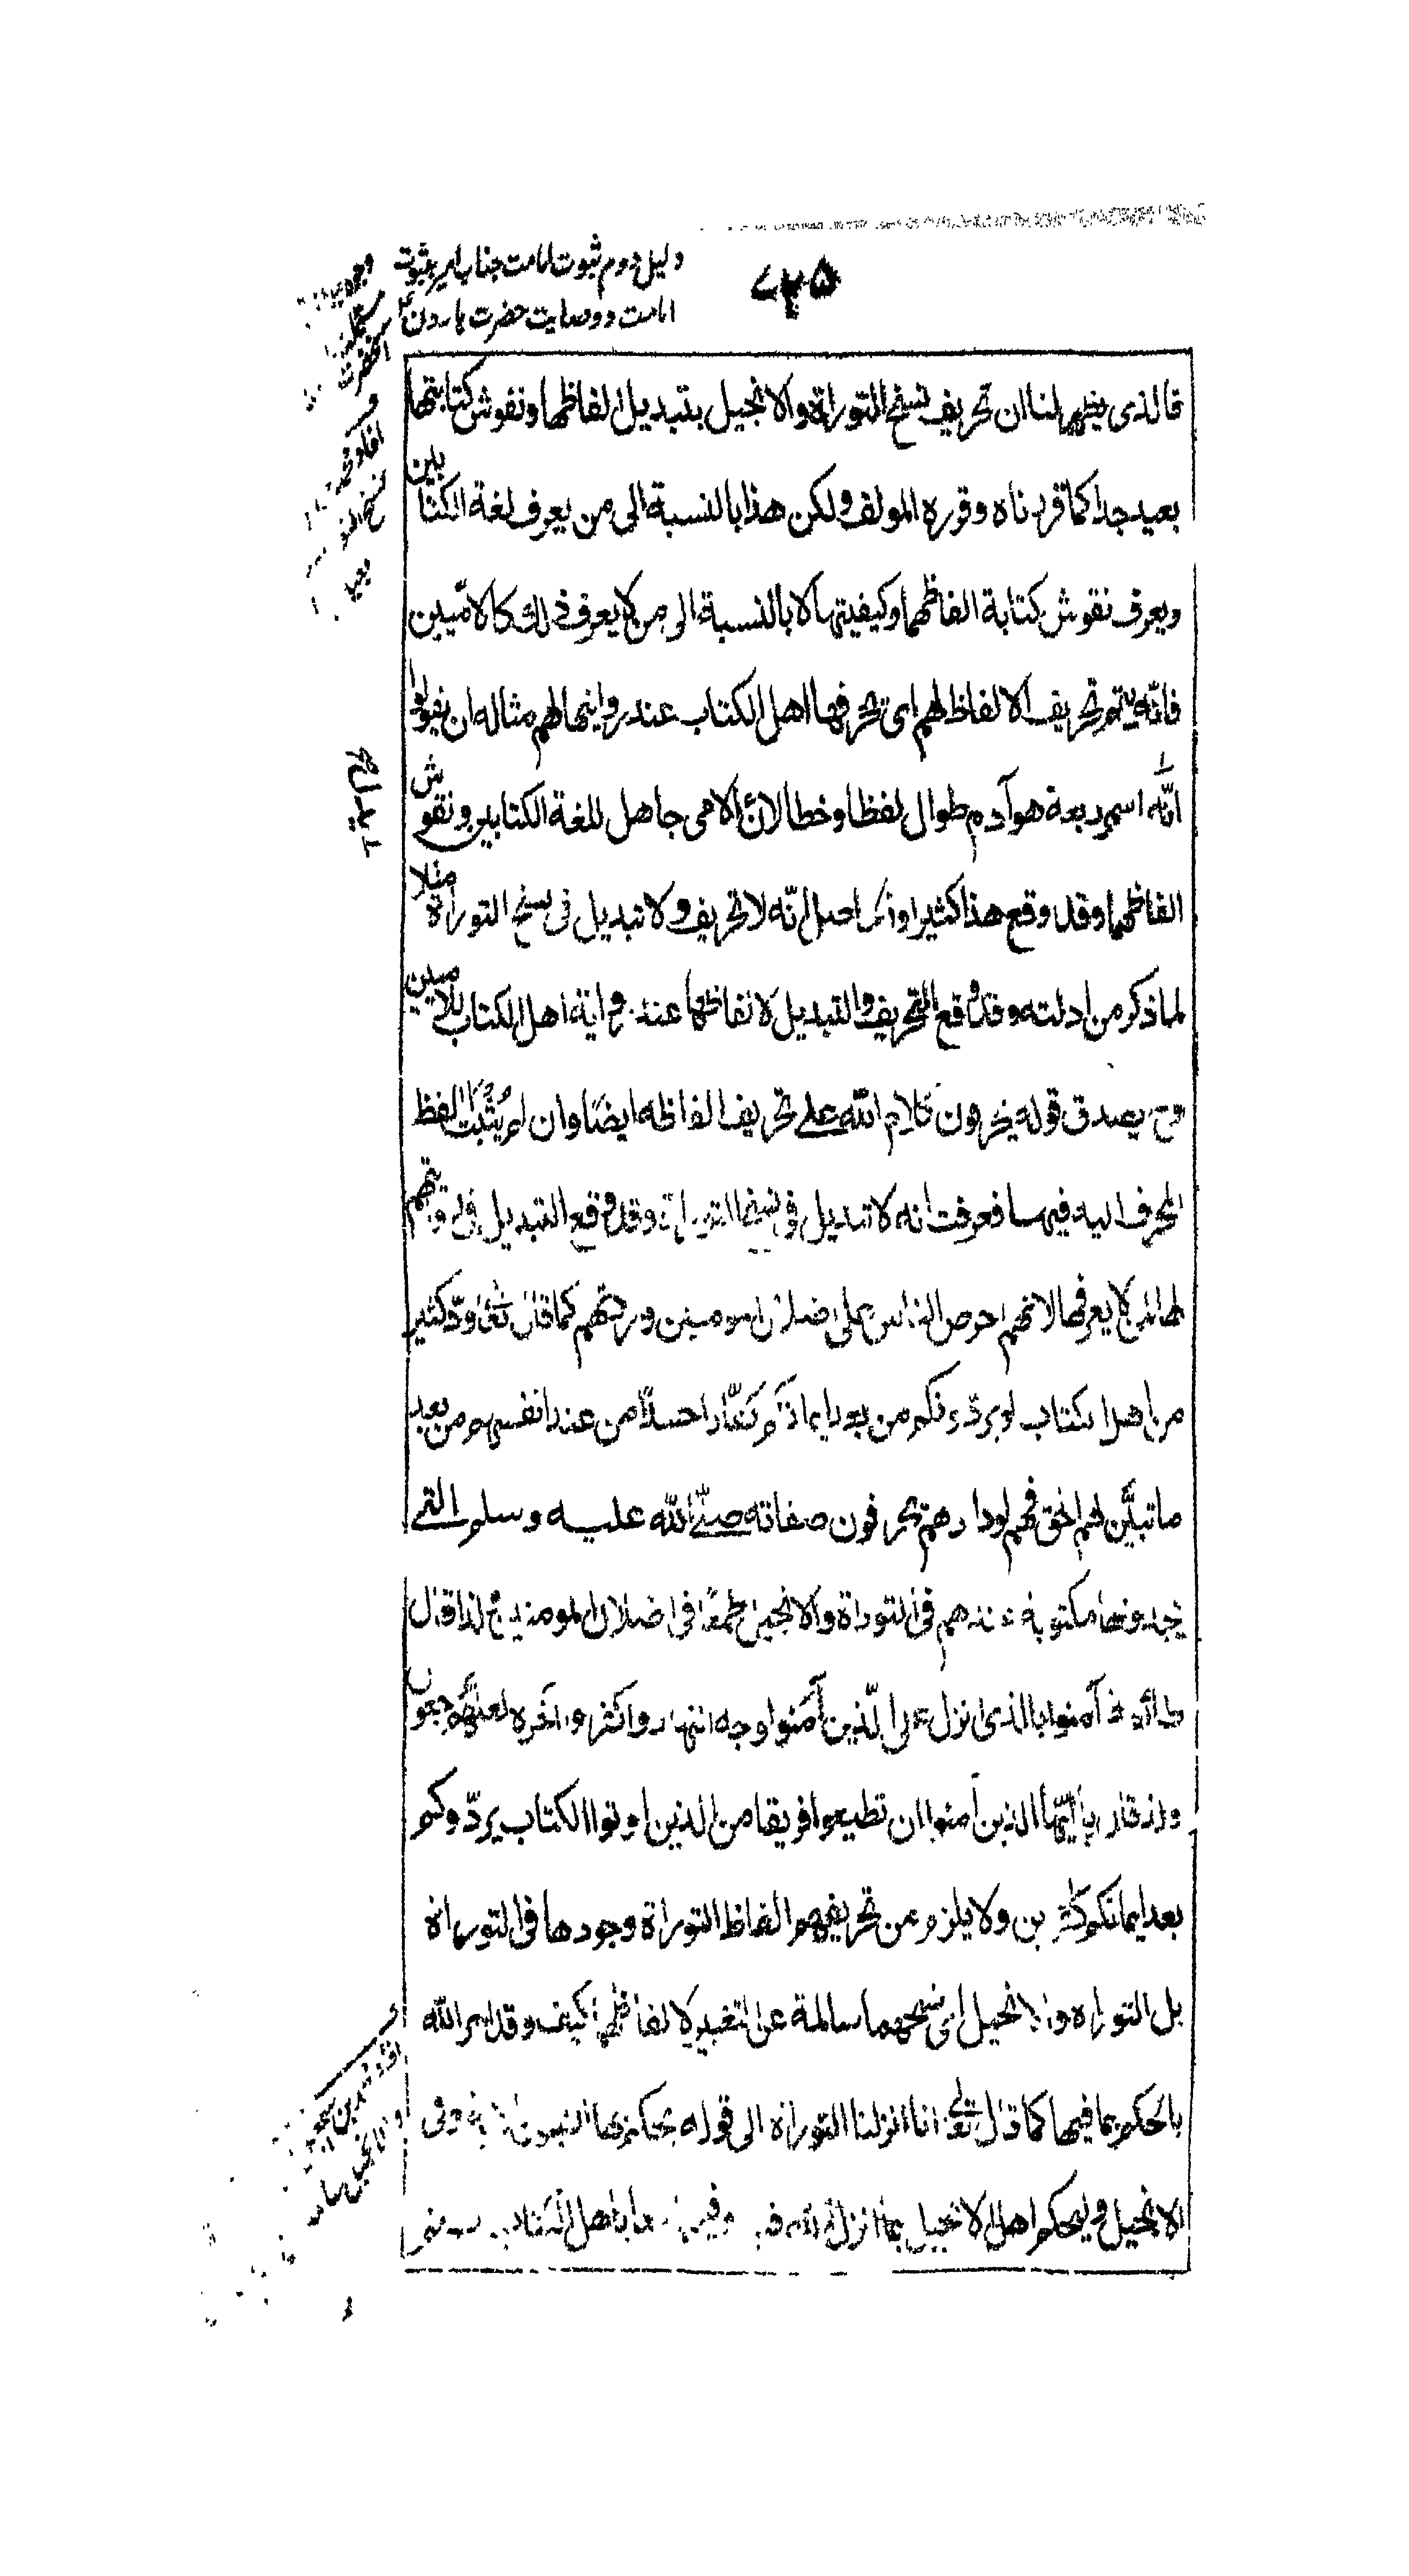 ۷۲۵
دلیل دوم ثبوت امامت جناب امیر بثبوت
امامت و وصایت حضرت هارون
فالذی یظهر لنا ان تحریف نسخ التوراة والانجیل بتبدیل الفاظها ونقوش کتابتها
بعید جدا کما قررناه وقرره المولف ولکن هذا بالنسبة الی من یعرف لغة الکتابین
ویعرف نقوش کتابة الفاظهما وکیفیتها لا بالنسبة الی من لا یعرف ذلک کالامّیین
فانّه یتم تحریف الالفاظ لهم ای تحرفها اهل الکتاب عند روایتها لهم مثاله ان یقولوا
انّه اسمر ربعة هو آدم طوال لفظا وخطا لانّ الامی جاهل للغة الکتابین ونقوش
الفاظهما وقد وقع هذا کثیرا والحاصل انّه لا تحریف ولا تبدیل فی نسخ التوراة مثلا
لما ذکر من ادلته وقد وقع التحریف والتبدیل لالفاظها عند روایة اهل الکتاب للامیین
وح یصدق قوله یحرفون کلام الله علی تحریف الفاظه ایضًا وان لم یُثبت اللفظ
المحرف الیه فیها فعرفت انه لا تبدیل فی نسخ التوراة وقد وقع التبدیل فی روایتهم
لها لمن لا یعرفها لانهم احرص الناس علی اضلال المومنین وردتهم کما قال تعالی ودّ کثیر
من اهل الکتاب لو یردّونکم من بعد ایمانکم کفّارا حسدًا من عند انفسهم من بعد
ما تبیّن لهم الحق فهم لودادهم یحرفون صفاته صلّی الله علیه وسلم التی
یجدونها مکتوبة عندهم فی التوراة والانجیل طمعًا فی اضلال المومنین لذا قال
طائفة آمنوا بالذی انزل علی الّذین آمنوا وجه النهار واکفروا آخره لعلّهم یرجعون
ولذ قال یا أیّها الذین آمنوا ان تطیعوا فریقا من الذین اوتوا الکتاب یردّوکم
بعد ایمانکم کافرین ولا یلزم من تحریفهم الفاظ التوراة وجودها فی التوراة
بل التوراة والانجیل ای نسخهما سالمة عن التغییر لالفاظهما کیف وقد امر الله
بالحکم بما فیها کما قال تعالی انا انزلنا التوراة الی قوله یحکم بها النبیون وفی
الانجیل ولیحکم اهل الانجیل بما انزل الله فیه